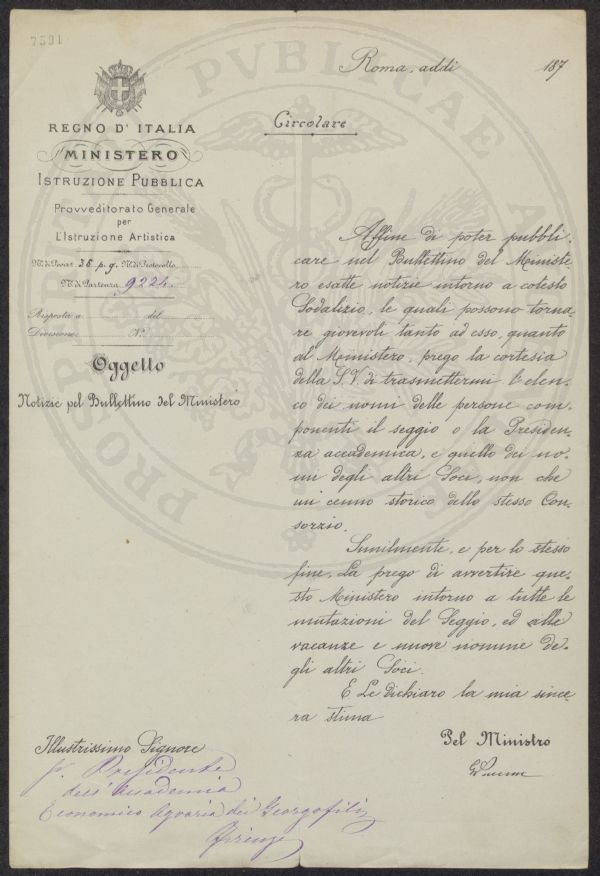 7591
Roma, addì 187
REGNO D'ITALIA
MINISTERO
ISTRUZIONE PUBBLICA
Provveditorato Generale
per
L'Istruzione Artistica
N. di Posiz. 36. p. g. N. di Protocollo
N. di Partenza 9224.
Risposta a del
Divisione N.
Oggetto
Notizie pel Bullettino del Ministero
Circolare
Affine di poter pubbli-
care nel Bullettino del Ministe-
ro esatte notizie intorno a cotesto
Sodalizio, le quali possono torna-
re giovevoli tanto ad esso, quanto
al Ministero, prego la cortesia
della S.V. di trasmettermi l'elen-
co dei nomi delle persone com-
ponenti il seggio o la Presiden-
za accademica, e quello dei no-
mi degli altri Soci, non che
un cenno storico dello stesso Con-
sorzio.
Similmente, e per lo stesso
fine, La prego di avvertire que-
sto Ministero intorno a tutte le
mutazioni del Seggio, ed alle
vacanze e nuove nomine de-
gli altri Soci.
E Le dichiaro la mia since-
ra stima
Pel Ministro
Illustrissimo Signore
Sr. Presidente
dell'Accademia
Economico Agraria dei Georgofili
Firenze
PROSPERITATI PVBLICAE AVGENDAE